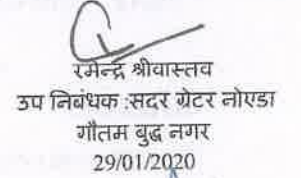 रमेन्द्र श्रीवास्तव
उप निबंधक :सदर ग्रेटर नोएडा
गौतम बुद्ध नगर
29/01/2020